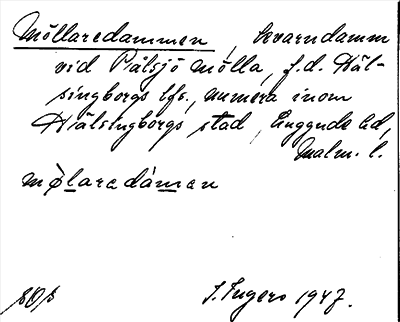 Möllaredammen, kvarndamm
vid Pålsjö mölla, f.d. Häl-
singborgs lfs., numera inom
Hälsingborgs stad, Luggude hd,
Malm. l.
mø̀laredámen
I. Ingers 1947.